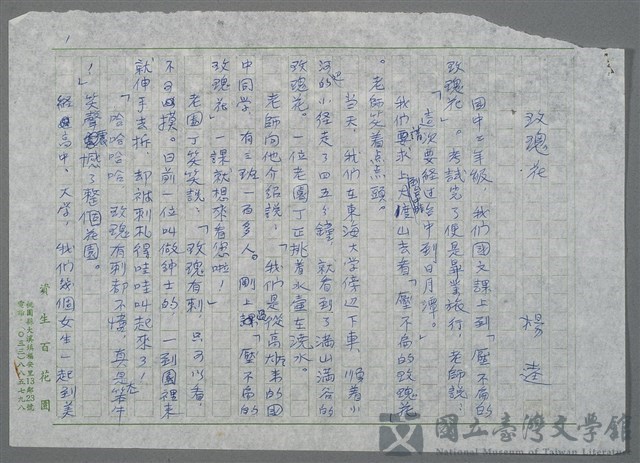 玫瑰花
楊逵
國中二年級,我們國文課上到「壓不扁的
玫瑰花」。考試完了便是畢業旅行,老師說:
「這次要經過台中到日月潭。」
我們要求上大肚山去看「壓不扁的玫瑰花
」。老師笑着点点頭。
當天,我們在東海大學傍边下車,順着小
河的小径走了四五分鐘,就看到了滿山滿谷的
玫瑰花。一位老園丁正挑着水壺在澆水。
老師向他介紹說:「我們是從高雄來的國
中同學,有三班一百多人。剛上課「壓不扁的
玫瑰花」一課就想來看您啦!」
老園丁笑笑說:「玫瑰有刺,只可以看,
不可以摸。日前一位叫做紳士的,一到園裡來
就伸手去折,却被刺札得哇哇叫起來了!」
「哈哈哈哈,玫瑰有刺都不懂,真是笨伴
!」笑聲震撼了整個花園。
經過高中、大學,我們幾個女生一起到美
資生百花園
桃園縣大溪鎮福安里13鄰23號
電話:(○三三)八八五七九八
國立臺灣文學館
National Museum of Taiwan Literature